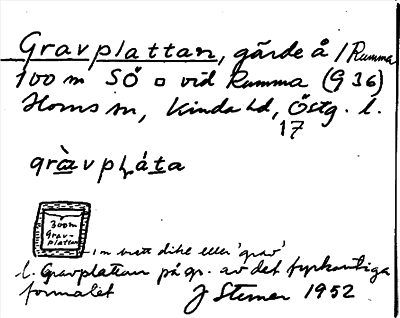 Gravplattan, gärde å / Rumma
100 m SÖ □ vid Rumma (9 36)
Horns sn, Kinda hd, Östg. l.
17
gràvpláta
300m
Grav-
plattan
1 m brett dike eller 'grav'
l. Gravplattan på gr. av det fyrkantiga
formatet J Sterner 1952